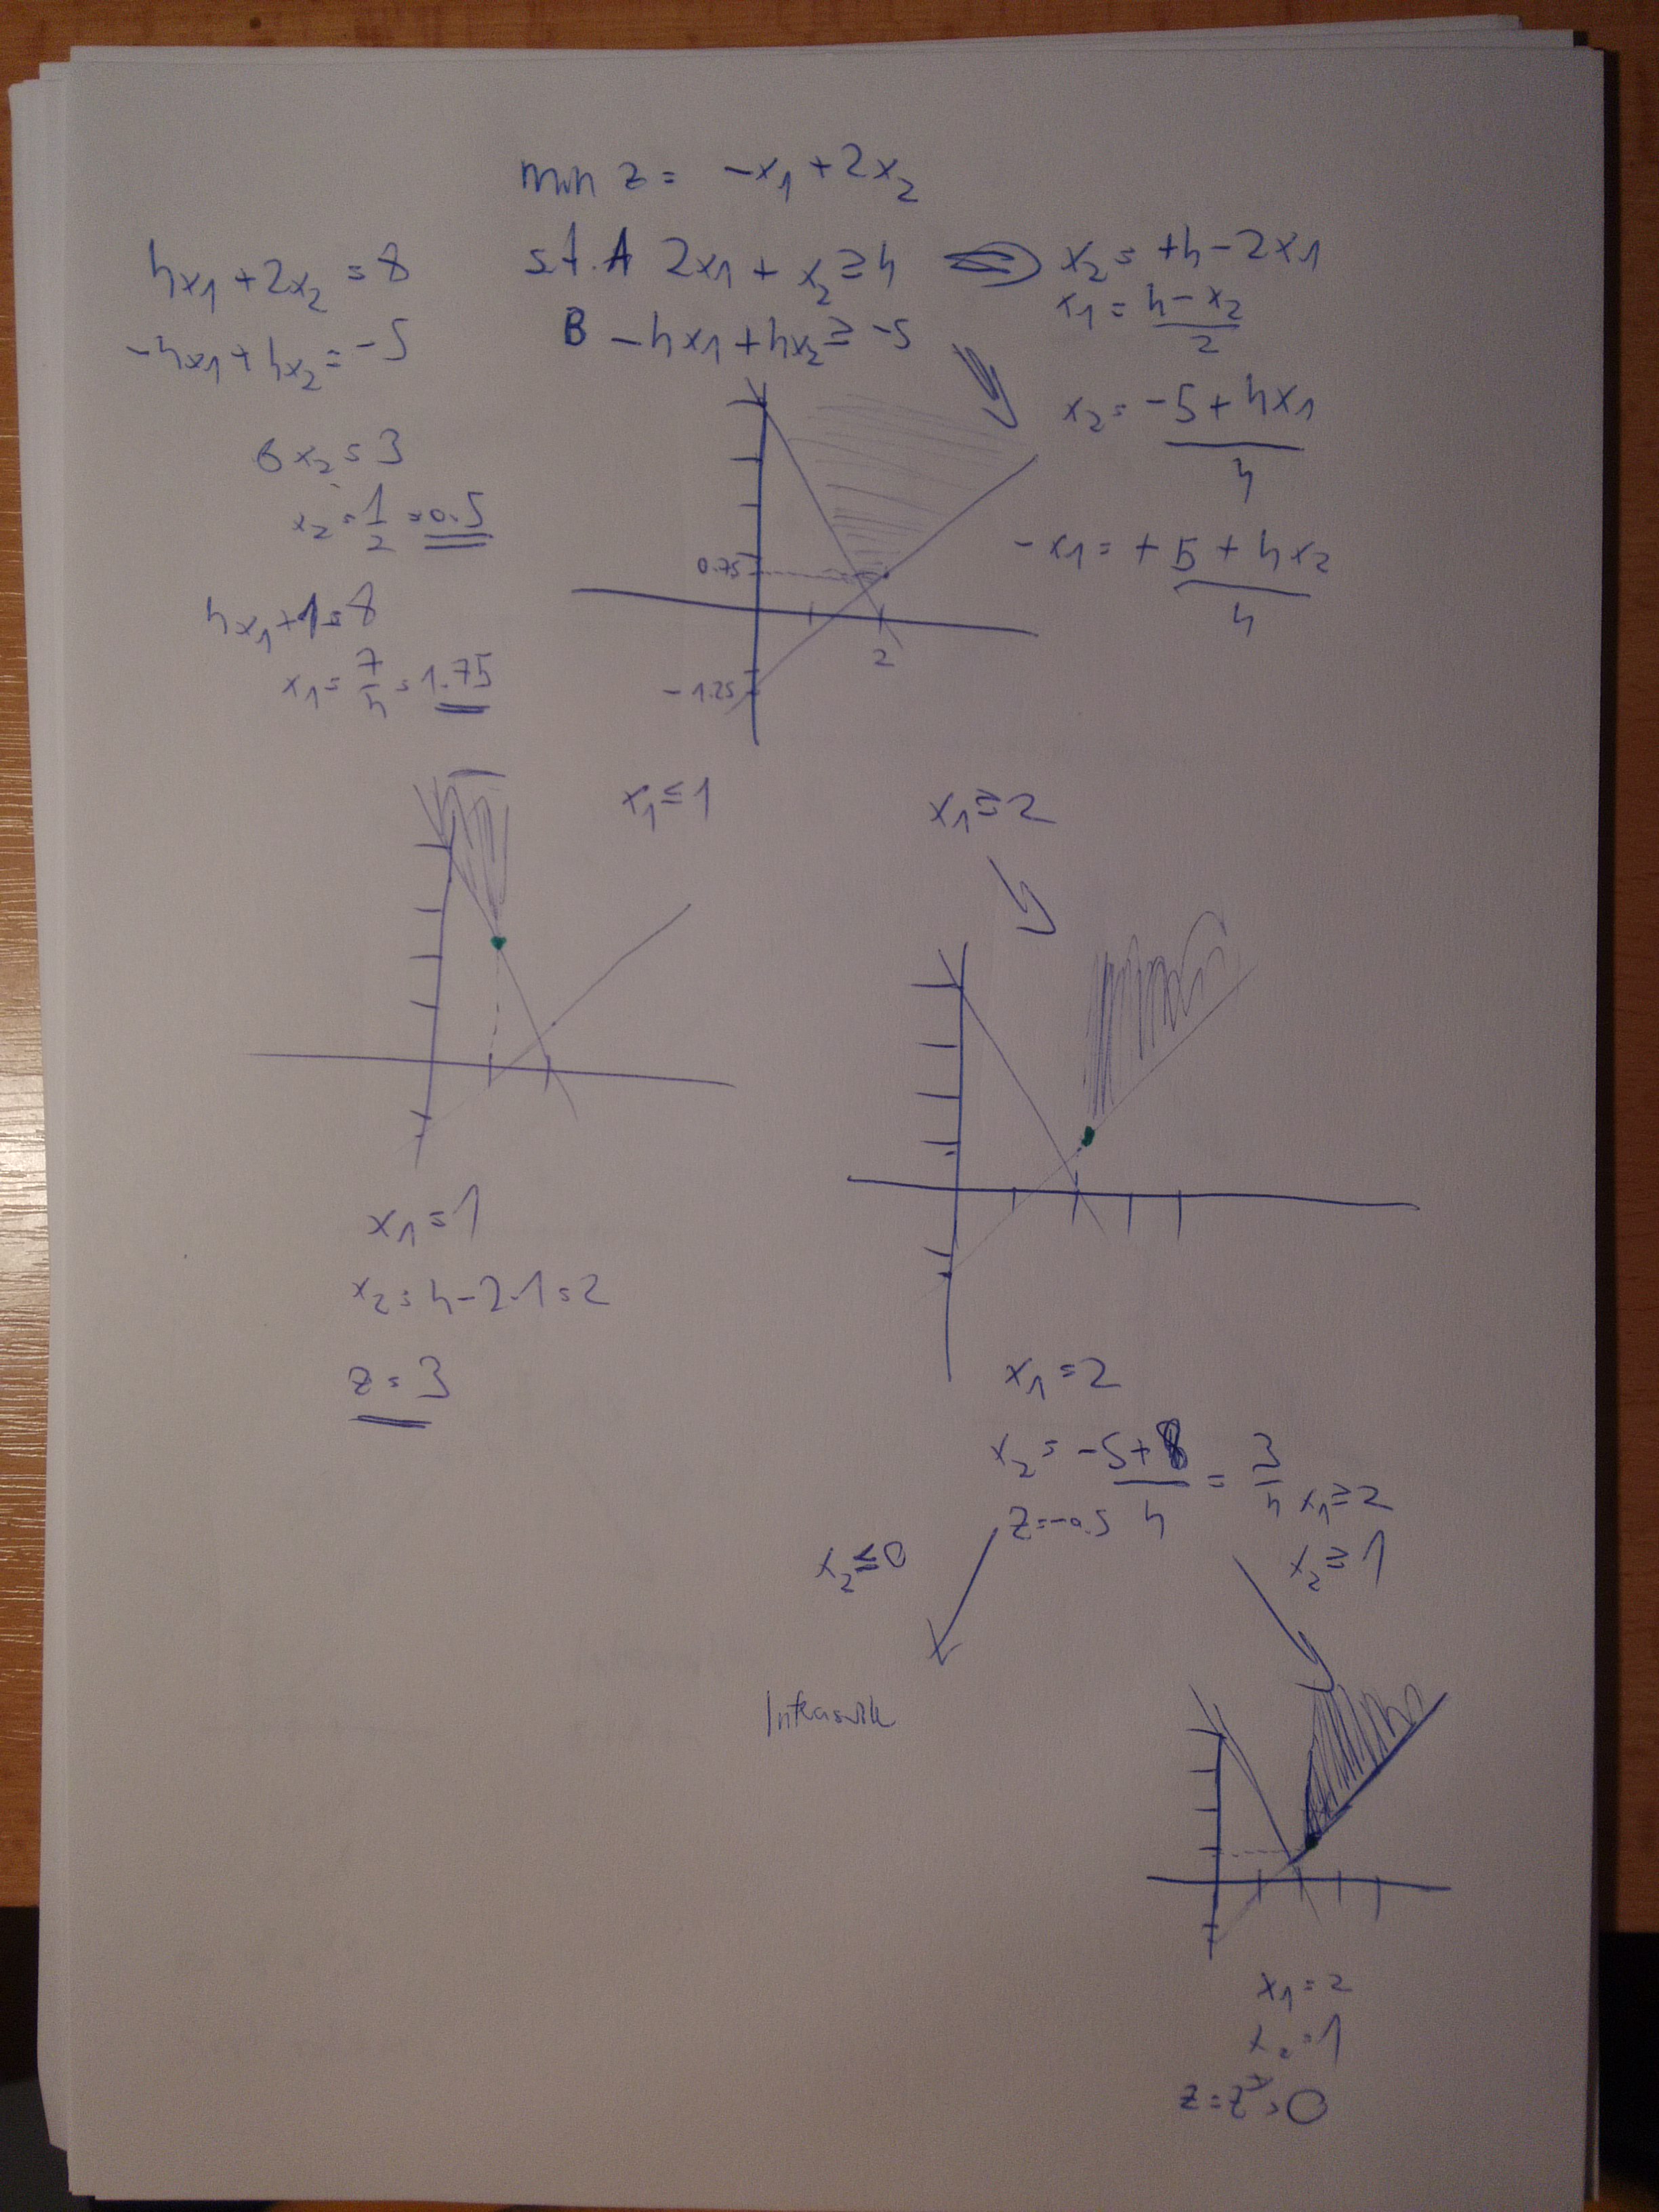 min z = -x1 + 2x2
s.t. A 2x1 + x2 ≥ 4
B -4x1 + 4x2 ≥ -5
x2 = +4 - 2x1
x1 = 4 - x2 / 2
x2 = -5 + 4x1 / 4
-x1 = +5 + 4x2 / 4
4x1 + 2x2 = 8
-4x1 + 4x2 = -5
6x2 = 3
x2 = 1/2 = 0.5
4x1 + 1 = 8
x1 = 7/4 = 1.75
0.75
2
-1.25
x1 ≤ 1
x1 ≥ 2
x1 = 1
x2 = 4 - 2·1 = 2
z = 3
x1 = 2
x2 = -5+8 / 4 = 3/4
z = -0.5
x2 ≤ 0
x1 ≥ 2
x2 ≥ 1
x1 = 2
x2 = 1
z = z* = 0